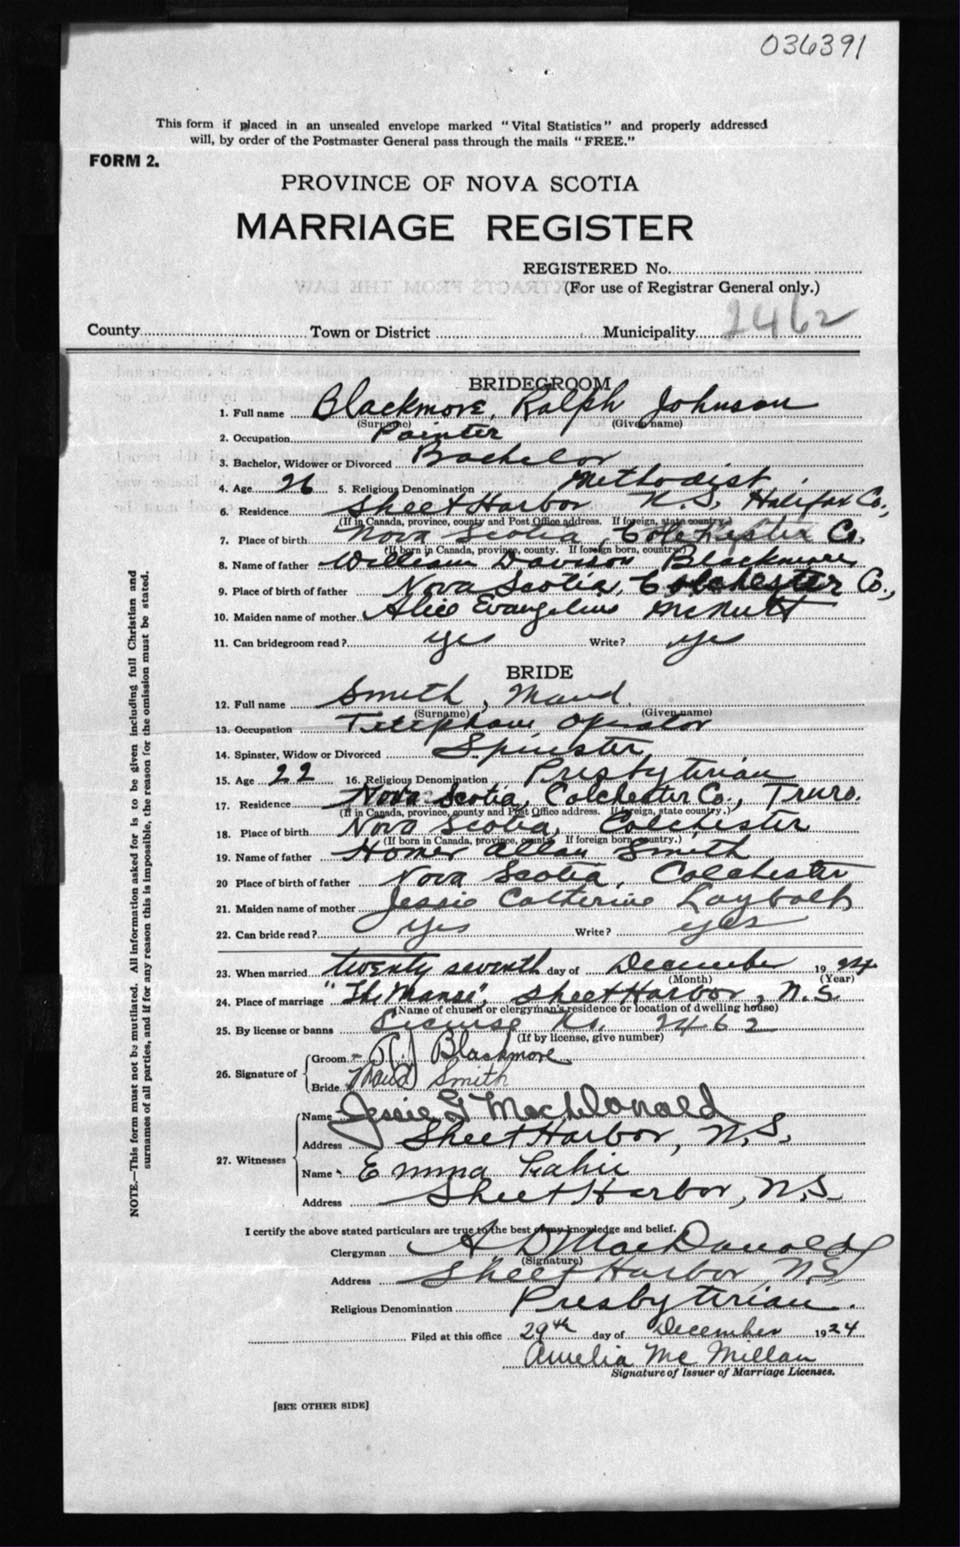 036391
This form if placed in an unsealed envelope marked "Vital Statistics" and properly addressed
will, by order of the Postmaster General pass through the mails "FREE."
FORM 2.
PROVINCE OF NOVA SCOTIA
MARRIAGE REGISTER
REGISTERED No.
(For use of Registrar General only.)
County Town or District Municipality 2462
BRIDEGROOM
1. Full name Blackmore, Ralph Johnson
(Surname) (Given name)
2. Occupation Painter
3. Bachelor, Widower or Divorced Bachelor
4. Age 26 5. Religious Denomination Methodist
6. Residence Sheet Harbor N.S, Halifax Co.,
(If in Canada, province, county and Post Office address. If foreign, state country.)
7. Place of birth Nova Scotia, Colchester Co.
(If born in Canada, province, county. If foreign born, country.)
8. Name of father William Davison Blackmore
9. Place of birth of father Nova Scotia, Colchester Co.,
10. Maiden name of mother Alice Evangeline McNutt
11. Can bridegroom read? yes Write? yes
BRIDE
12. Full name Smith, Maud
(Surname) (Given name)
13. Occupation Telephone Operator
14. Spinster, Widow or Divorced Spinster
15. Age 22 16. Religious Denomination Presbyterian
17. Residence Nova Scotia, Colchester Co., Truro.
(If in Canada, province, county and Post Office address. If foreign, state country.)
18. Place of birth Nova Scotia, Colchester
(If born in Canada, province, county. If foreign born, country.)
19. Name of father Homer Allan Smith
20 Place of birth of father Nova Scotia, Colchester
21. Maiden name of mother Jessie Catherine Laybolt
22. Can bride read? yes Write? yes
23. When married twenty seventh day of December 1924
(Month) (Year)
24. Place of marriage "The Manse", Sheet Harbor, N.S.
(Name of church or clergyman's residence or location of dwelling house)
25. By license or banns License No. 2462
(If by license, give number)
26. Signature of
Groom R J Blackmore
Bride Maud Smith
27. Witnesses
Name Jessie G MacDonald
Address Sheet Harbor, N.S.
Name Emma
Address Sheet Harbor, N.S
I certify the above stated particulars are true to the best of my knowledge and belief.
Clergyman A D MacDonald
(Signature)
Address Sheet Harbor, N.S.
Religious Denomination Presbyterian.
Filed at this office 29th day of December 1924
Amelia McMillan
Signature of Issuer of Marriage Licenses.
[SEE OTHER SIDE]
NOTE.—This form must not be mutilated. All information asked for is to be given including full Christian and
surnames of all parties, and if for any reason this is impossible, the reason for the omission must be stated.